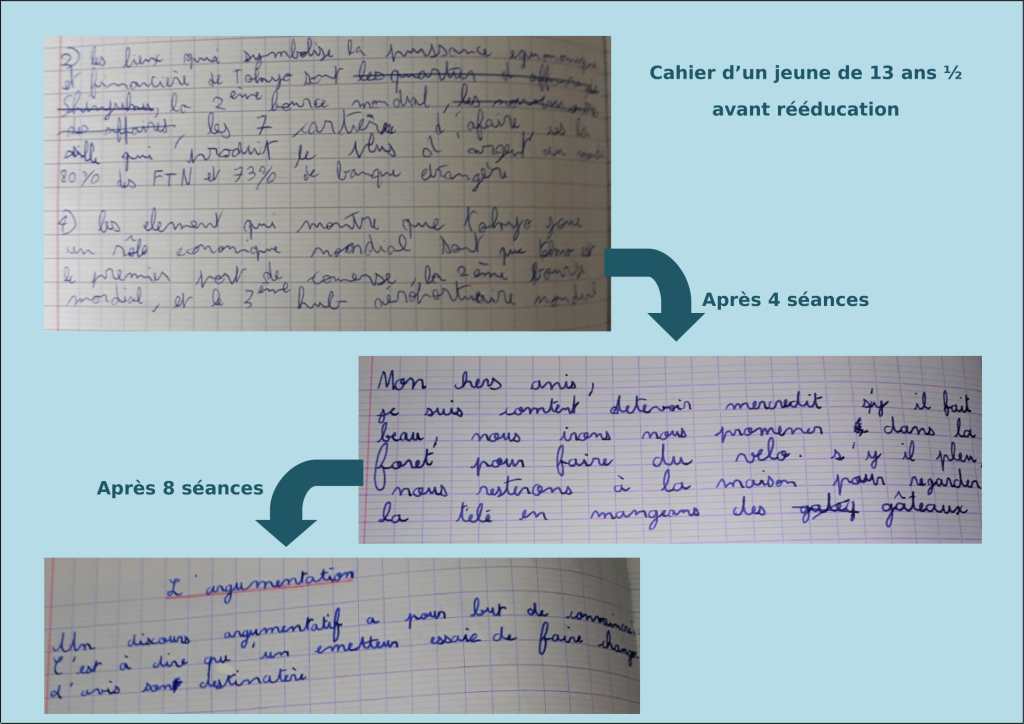 Cahier d’un jeune de 13 ans ½
avant rééducation
3) les lieux qui symbolise la puissance economique
et financière de Tokyo sont les quartier d'affaire de
Shinjuku, la 2ème bource mondial,
des affaires, les 7 cartière d'afaire, est la
ville qui produit le plus d'argent au
80% des FTN et 73% de banque etrangère
4) les element qui montre que tokyo joue
un rôle economique mondial sont que
le premier port de comerse, la 2ème bource
mondial, et le 3ème hub aéroportuaire mondial
Après 4 séances
Mon hers amis,
je suis comtent detevoir mercredit s'y il fait
beau, nous irons nous promener dans la
foret pour faire du velo. s'y il pleu
nous resterons à la maison pour regarder
la télé en mangeans des gâteaux
Après 8 séances
L'argumentation
Un discours argumentatif a pour but de convaincre.
C'est à dire que l'un emetteur essaie de faire change
d'avis son destinatère